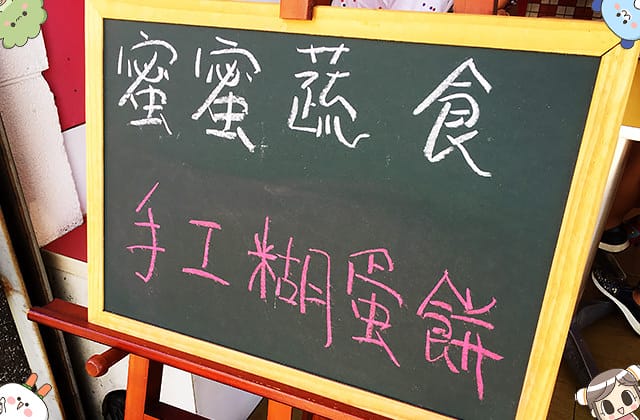 蜜蜜蔬食
手工糊蛋餅